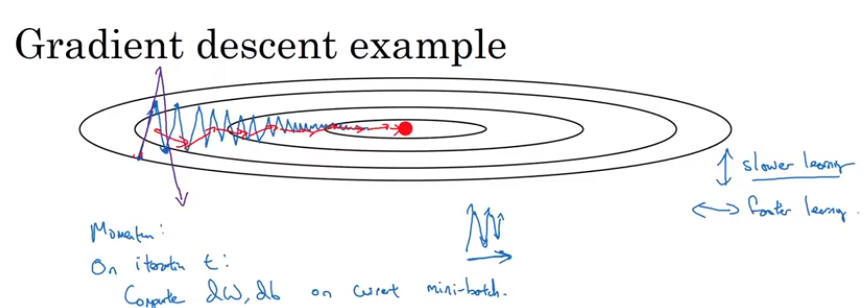 Gradient descent example
slower learning
faster learning.
Momentum:
On iteration t:
Compute dW, db on current mini-batch.